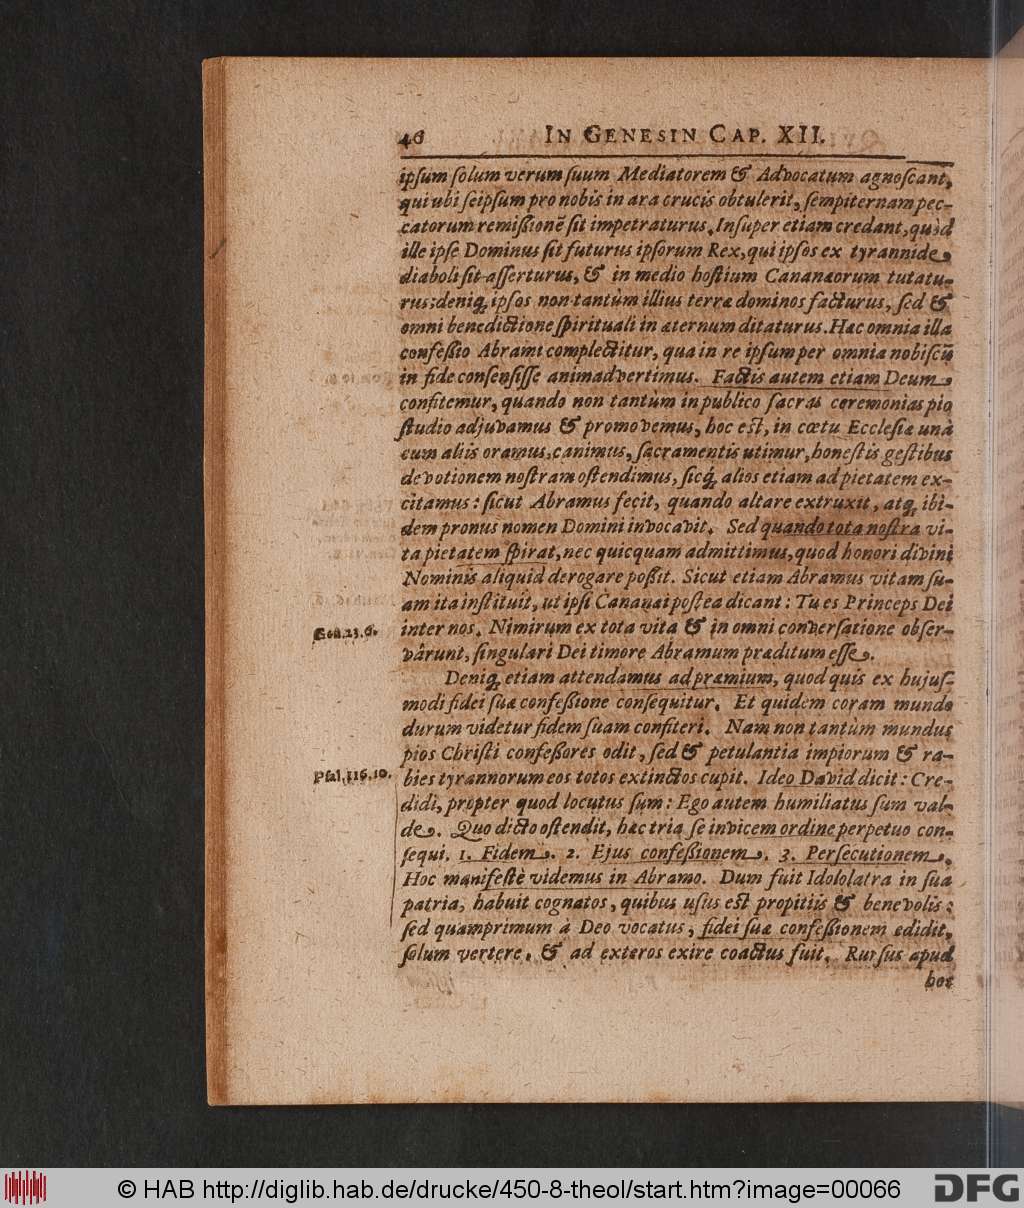 46 IN GENESIN CAP. XII.
ipſum ſolum verum ſuum Mediatorem & Advocatum agnoſcant,
qui ubi ſeipſum pro nobis in ara crucis obtulerit, ſempiternam pec-
catorum remißionē ſit impetraturus. Inſuper etiam credant, quòd
ille ipſe Dominus ſit futurus ipſorum Rex, qui ipſos ex tyrannide
diaboli ſit aſſerturus, & in medio hoſtium Cananæorum tutatu-
rus; deniq; ipſos non tantùm illius terræ dominos facturus, ſed &
omni benedictione ſpirituali in æternum ditaturus. Hæc omnia illa
confeßio Abrami complectitur, quæ in re ipſum per omnia nobiſcū
in fide conſenſiſſe animadvertimus. Factis autem etiam Deum
confitemur, quando non tantùm in publico ſacras ceremonias pio
ſtudio adjuvamus & promovemus, hoc eſt, in cœtu Eccleſiæ unà
cum aliis oramus, canimus, ſacramentis utimur, honeſtis geſtibus
devotionem noſtram oſtendimus, ſicq; alios etiam ad pietatem ex-
citamus: ſicut Abramus fecit, quando altare extruxit, atq; ibi-
dem pronus nomen Domini invocavit. Sed quando tota noſtra vi-
ta pietatem ſpirat, nec quicquam admittimus, quod honori divini
Nominis aliquid derogare poßit. Sicut etiam Abramus vitam ſu-
am ita inſtituit, ut ipſi Cananæi poſtea dicant: Tu es Princeps Dei
Gen. 23. 6. inter nos. Nimirum ex tota vita & in omni converſatione obſer-
vârunt, ſingulari Dei timore Abramum præditum eſſe.
Deniq; etiam attendamus ad præmium, quod quis ex hujuſ-
modi fidei ſuæ confeßione conſequitur. Et quidem coram mundo
durum videtur fidem ſuam confiteri. Nam non tantùm mundus
pios Chriſti confeſſores odit, ſed & petulantia impiorum & ra-
Pſal. 116. 10. bies tyrannorum eos totos extinctos cupit. Ideo David dicit: Cre-
didi, propter quod locutus ſum: Ego autem humiliatus ſum val-
de. Quo dicto oſtendit, hæc tria ſe invicem ordine perpetuo con-
ſequi. 1. Fidem. 2. Ejus confeßionem. 3. Perſecutionem.
Hoc manifeſtè videmus in Abramo. Dum fuit Idololatra in ſua
patria, habuit cognatos, quibus uſus eſt propitiis & benevolis:
ſed quamprimum à Deo vocatus, fidei ſuæ confeßionem edidit,
ſolum vertere, & ad exteros exire coactus fuit. Rurſus apud
hos
© HAB http://diglib.hab.de/drucke/450-8-theol/start.htm?image=00066
DFG